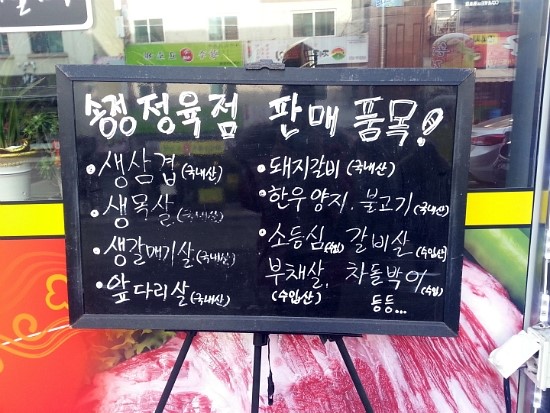 송정 정육점 판매 품목!
• 생삼겹 (국내산)
• 생목살 (국내산)
• 생갈매기살 (국내산)
• 앞다리살 (국내산)
• 돼지갈비 (국내산)
• 한우양지. 불고기 (국내산)
• 소등심 (수입) 갈비살 (수입산)
부채살. 차돌박이
(수입산) (수입)
등등...